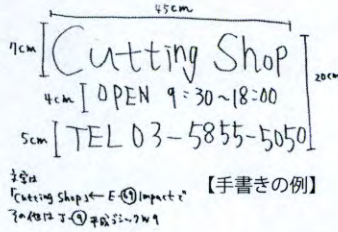 45cm
7cm Cutting Shop
20cm
4cm OPEN 9:30~18:00
5cm TEL 03-5855-5050
文字は
「Cutting Shop」← E-㊾ Impact で
その他は J-⑨ 平成ゴシックW9
【手書きの例】